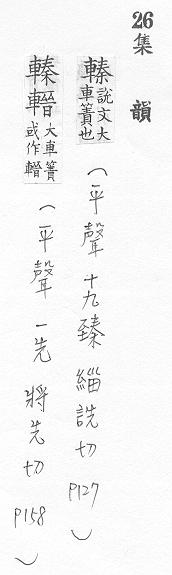 26集韻
轃說文大車簀也（平聲十九臻緇詵切P127）
轃轃一大車簀或作䡽（平聲一先將先切P158）